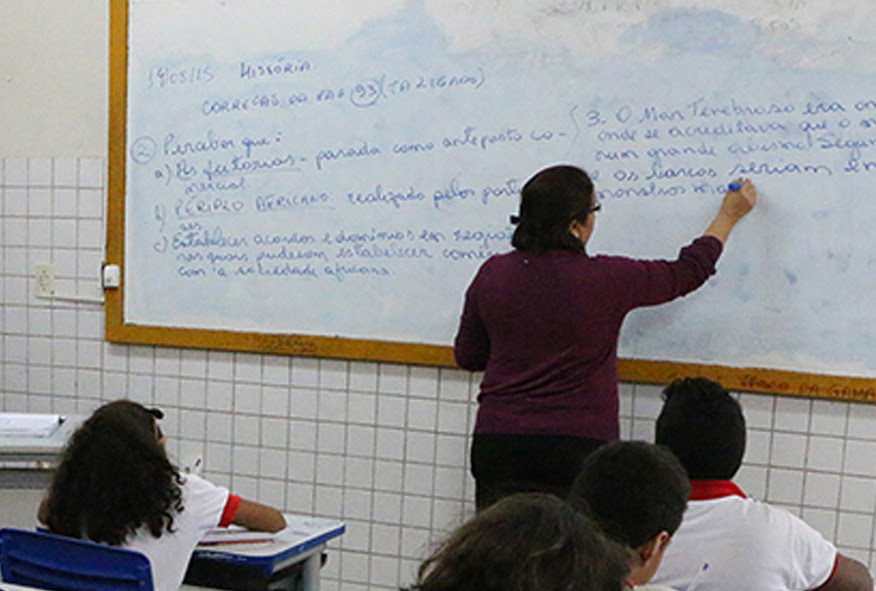 19/03/15 HISTÓRIA
CORREÇÃO DA PAG 93 (TÁ LIGADO)
2 Perceber que:
a) As feitorias - parada como anteposto co-
mercial
b) PÉRIPLO AFRICANO: realizado pelos portu
ses
c) Estabelecer acordos e domínios em regiõ
nas quais puderam estabelecer comér
com a sociedade africana.
3. O Mar Tenebroso era on
onde se acreditava que o m
num grande abismo. Segun
e os barcos seriam en
monstros mar
VASCO DA GAMA